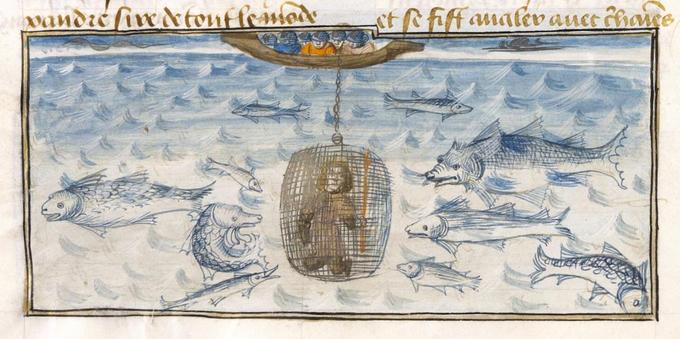 vandre sire de tout le mode et se fist avaler avec chaines